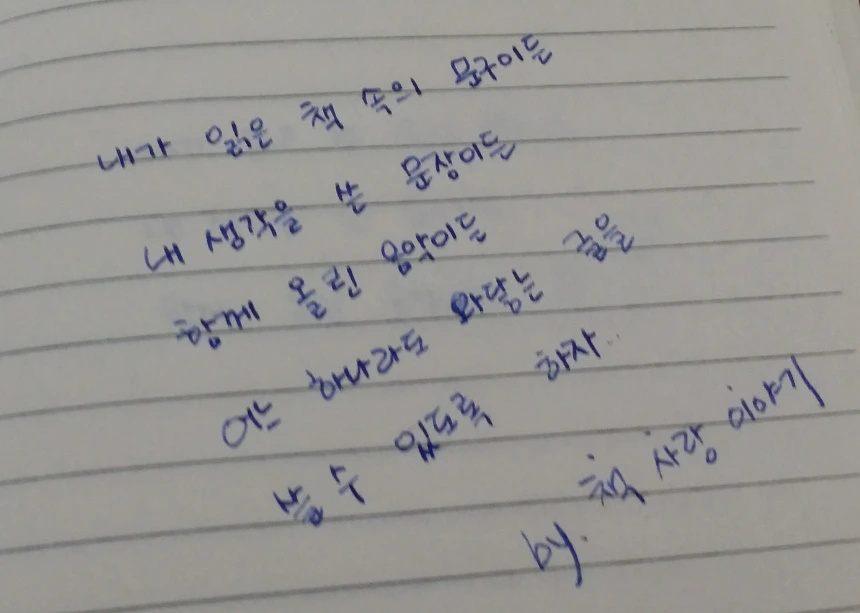 내가 읽은 책 속의 문구이든
내 생각을 쓴 문장이든
함께 올린 음악이든
어느 하나라도 와닿는 글을
쓸 수 있도록 하자..
by. 책 사랑 이야기